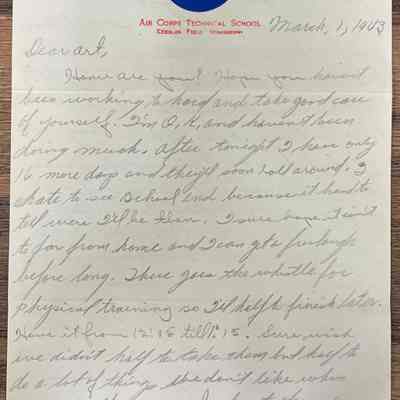 AIR CORPS TECHNICAL SCHOOL
KEESLER FIELD MISSISSIPPI
March, 1, 1943
Dear Art,
How are you? Hope you haven't
been working to hard and take good care
of yourself. I'm O, K, and haven't been
doing much. After tonight I have only
16 more days and they'll soon roll around. I
hate to see school end because it hard to
tell were I'll be then. I sure hope it isn't
to far from home and I can get a furlough
before long. There goes the whistle for
physical training so I'll half to finish later.
Have it from 12:15 till 1:15. Sure wish
we didn't half to take them but half to
do a lot of things we don't like when